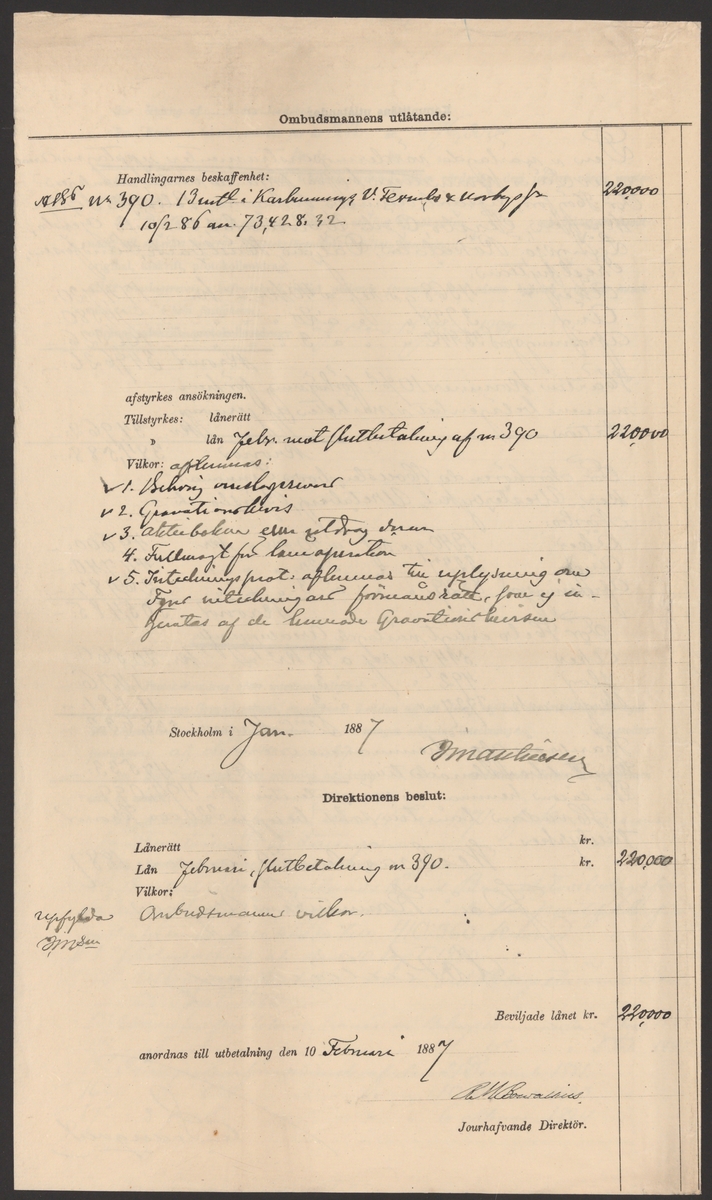 Ombudsmannens utlåtande:
Handlingarnes beskaffenhet:
No 390. 13 i V. 220,000
10/2 86 73,428.32
afstyrkes ansökningen.
Tillstyrkes: lånerätt
" lån Febr. mot slutbetalning af no 390 220,000
Vilkor: aflemnas:
1. Behörig
2. Gravationsbevis
3. Aktieboken utdrag deraf
4. Fullmagt för låneoperation
5. Inteckningsprot: aflemnas till uplysning om
förmånsrätt, som ej in-
hemtas af de lemnade Gravationsbevisen
Stockholm i Jan. 1887
Direktionens beslut:
Lånerätt kr.
Lån Februari, slutbetalning no 390. kr. 220,000
Vilkor:
upfylda Ombudsmannens vilkor.
Beviljade lånet kr. 220,000
anordnas till utbetalning den 10 Februari 1887
Jourhafvande Direktör.